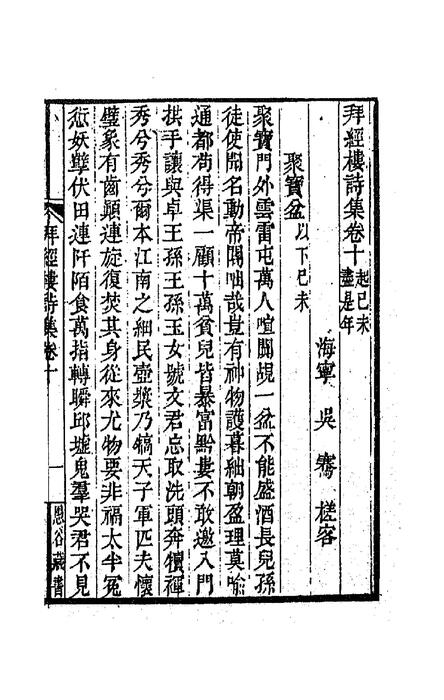 拜經樓詩集卷十起己未盡是年
海寧 吳騫 槎客
聚寶盆以下己未
聚寶門外雲雷屯萬人喧鬭覘一盆不能盛酒長兒孫
徒使聞名動帝閽咄哉豈有神物護暮紬朝盈理莫喻
通都苟得渠一顧十萬貧兒皆暴富黔婁不敢邀入門
拱手讓與卓王孫王孫玉女號文君忘取洗頭奔犢褌
秀兮秀兮爾本江南之細民壺漿乃犒天子軍匹夫懷
璧象有齒顚連旋復焚其身從來尤物要非福太半冤
愆妖孽伏田連阡陌食萬指轉瞬邱墟鬼羣哭君不見
拜經樓詩集卷十
一
愚谷叢書